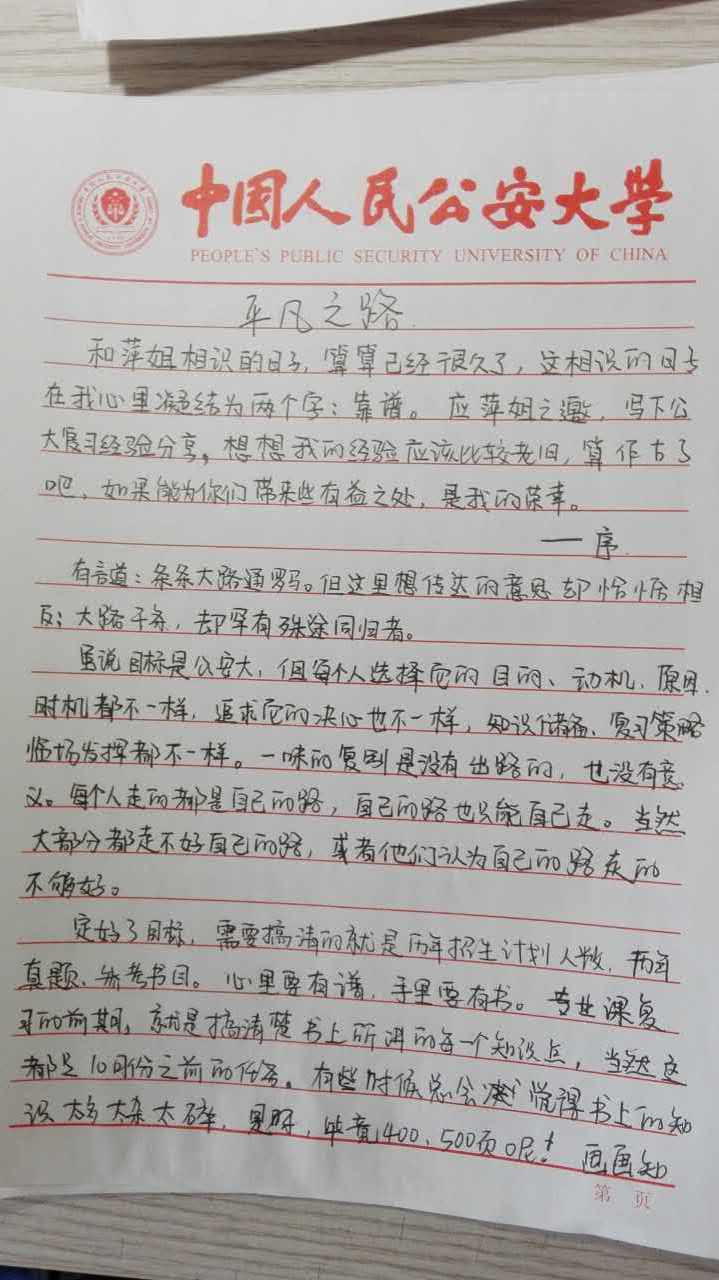 中国人民公安大学
PEOPLE'S PUBLIC SECURITY UNIVERSITY OF CHINA
平凡之路.
和萍姐相识的日子，算算已经很久了，这相识的日子
在我心里凝结为两个字：靠谱。应萍姐之邀，写下公
大复习经验分享。想想我的经验应该比较老旧，算作古了
吧，如果能为你们带来些有益之处，是我的荣幸。
——序.
有言道：条条大路通罗马。但这里想传达的意思却恰恰相
反：大路千条，却罕有殊途同归者。
虽说目标是公安大，但每个人选择它的目的、动机、原因、
时机都不一样，追求它的决心也不一样，知识储备、复习策略
临场发挥都不一样。一味的复刻是没有出路的，也没有意
义。每个人走的都是自己的路，自己的路也只能自己走。当然
大部分都走不好自己的路，或者他们认为自己的路走的
不够好。
定好了目标，需要搞清的就是历年招生计划人数，历年
真题、参考书目。心里要有谱，手里要有书。专业课复
习的前期，就是搞清楚书上所讲的每一个知识点，当然这
都是10月份之前的任务。有些时候总会觉得书上的知
识太多太杂太碎，是呀，毕竟400、500页呢！画画知
第 页